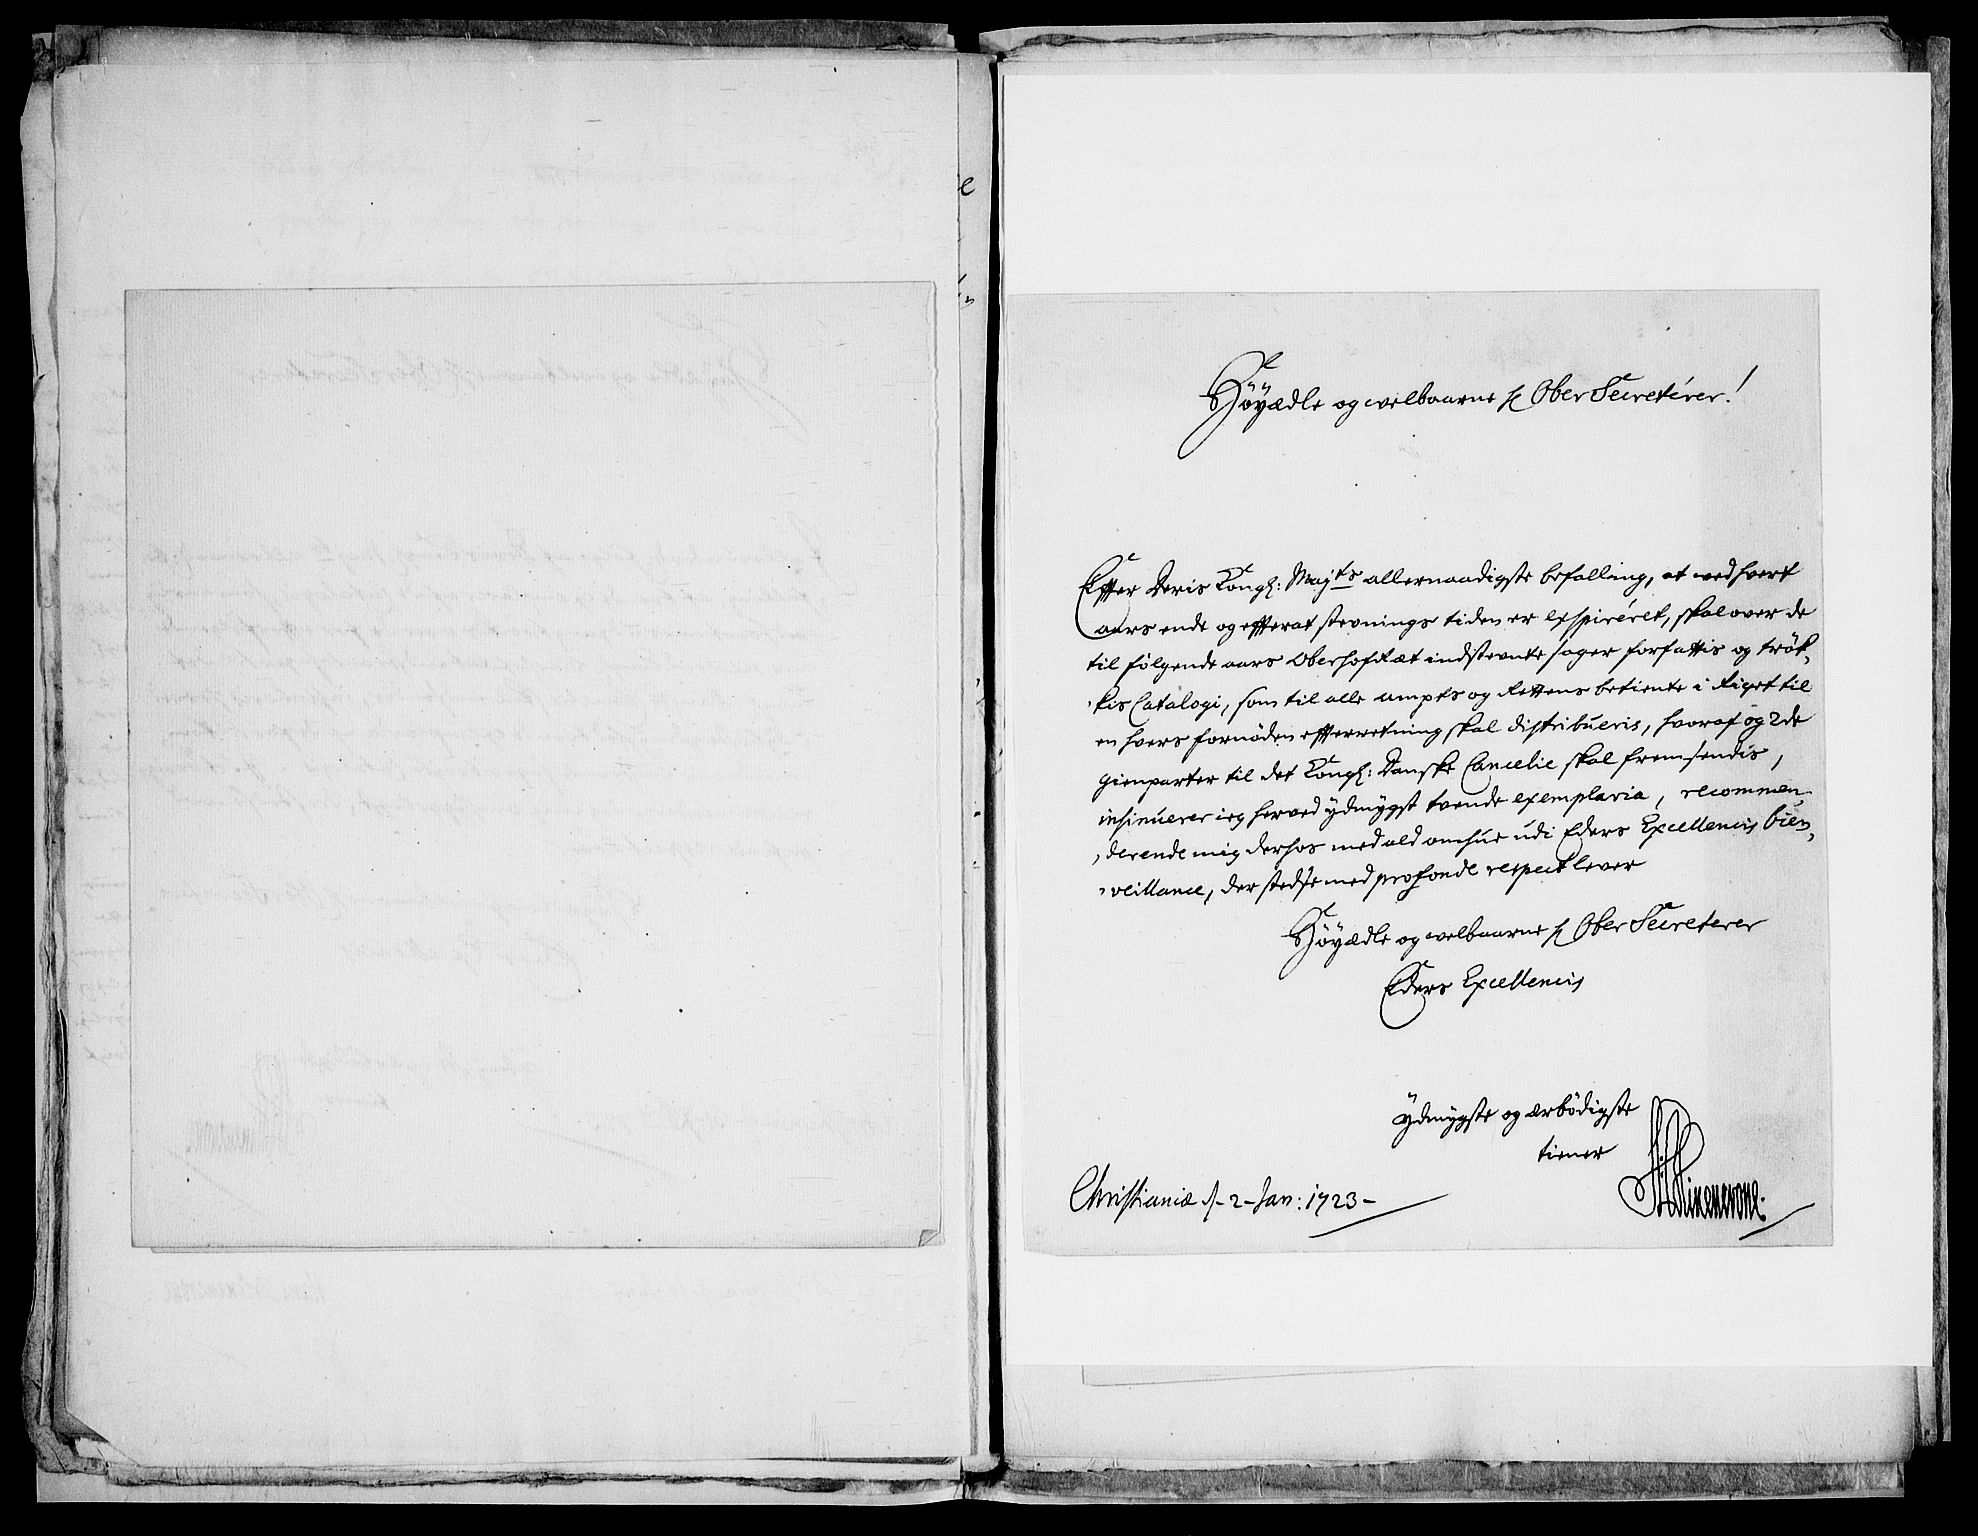 Höÿædle og welbaarne H Ober Secretérer!
Effter Deris Kongl: Maj:ts allernaadigste befalling, at ved hvert
aars ende og effterat stevnings tiden er exspiréret, skal over de
til følgende aars OberhofRæt indstevnte sager forfattis og trök-
kis Catalogi, som til alle ampts og Rettens betiente i Riget til
en hvers fornöden effterretning skal distribueris, hvoraf og 2de
gienparter til det Kongl: Danske Cancelie skal fremsendis,
insinuerer ieg herved ydmygst tvende exemplaria, recommen-
derende mig derhos med ald omhue udi Eders Excellencis bien-
veillance, der stedse med profonde respect lever
Höÿædle og welbaarne H Ober Secreterer
Eders Excellencis
ÿdmygste og ærbödigste
tiener
Christianiæ d- 2- Jan: 1723-